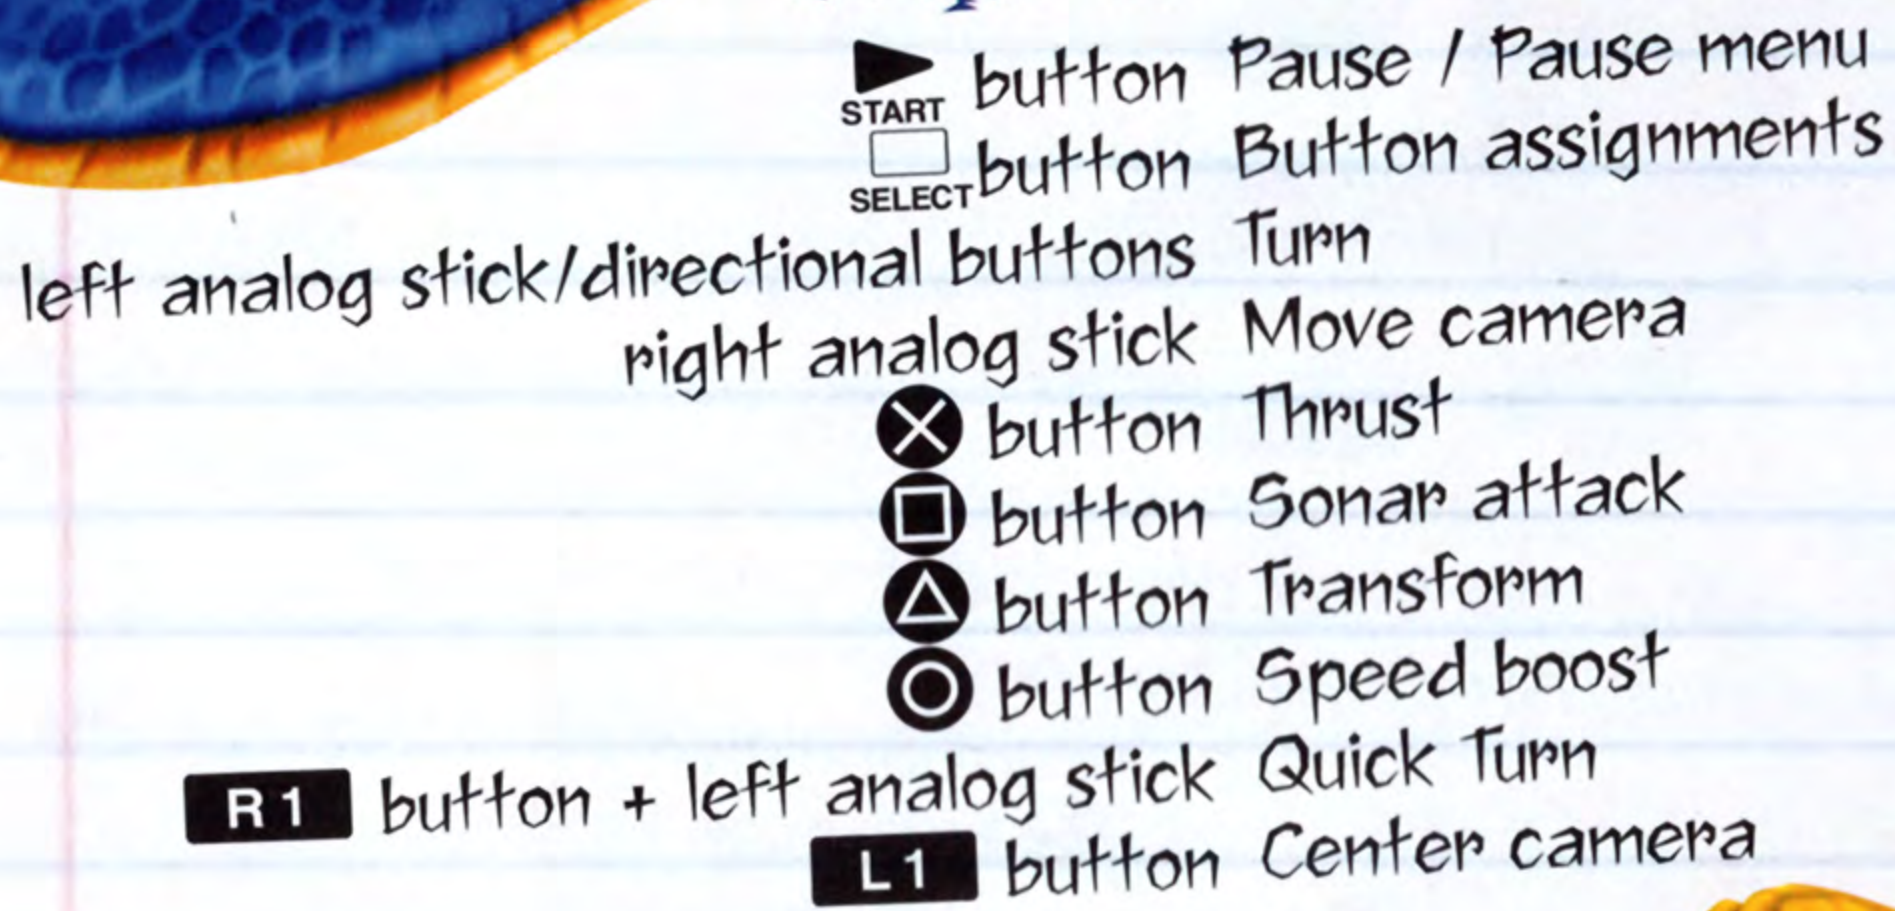 START button Pause / Pause menu
SELECT button Button assignments
left analog stick/directional buttons Turn
right analog stick Move camera
button Thrust
button Sonar attack
button Transform
button Speed boost
R1 button + left analog stick Quick Turn
L1 button Center camera